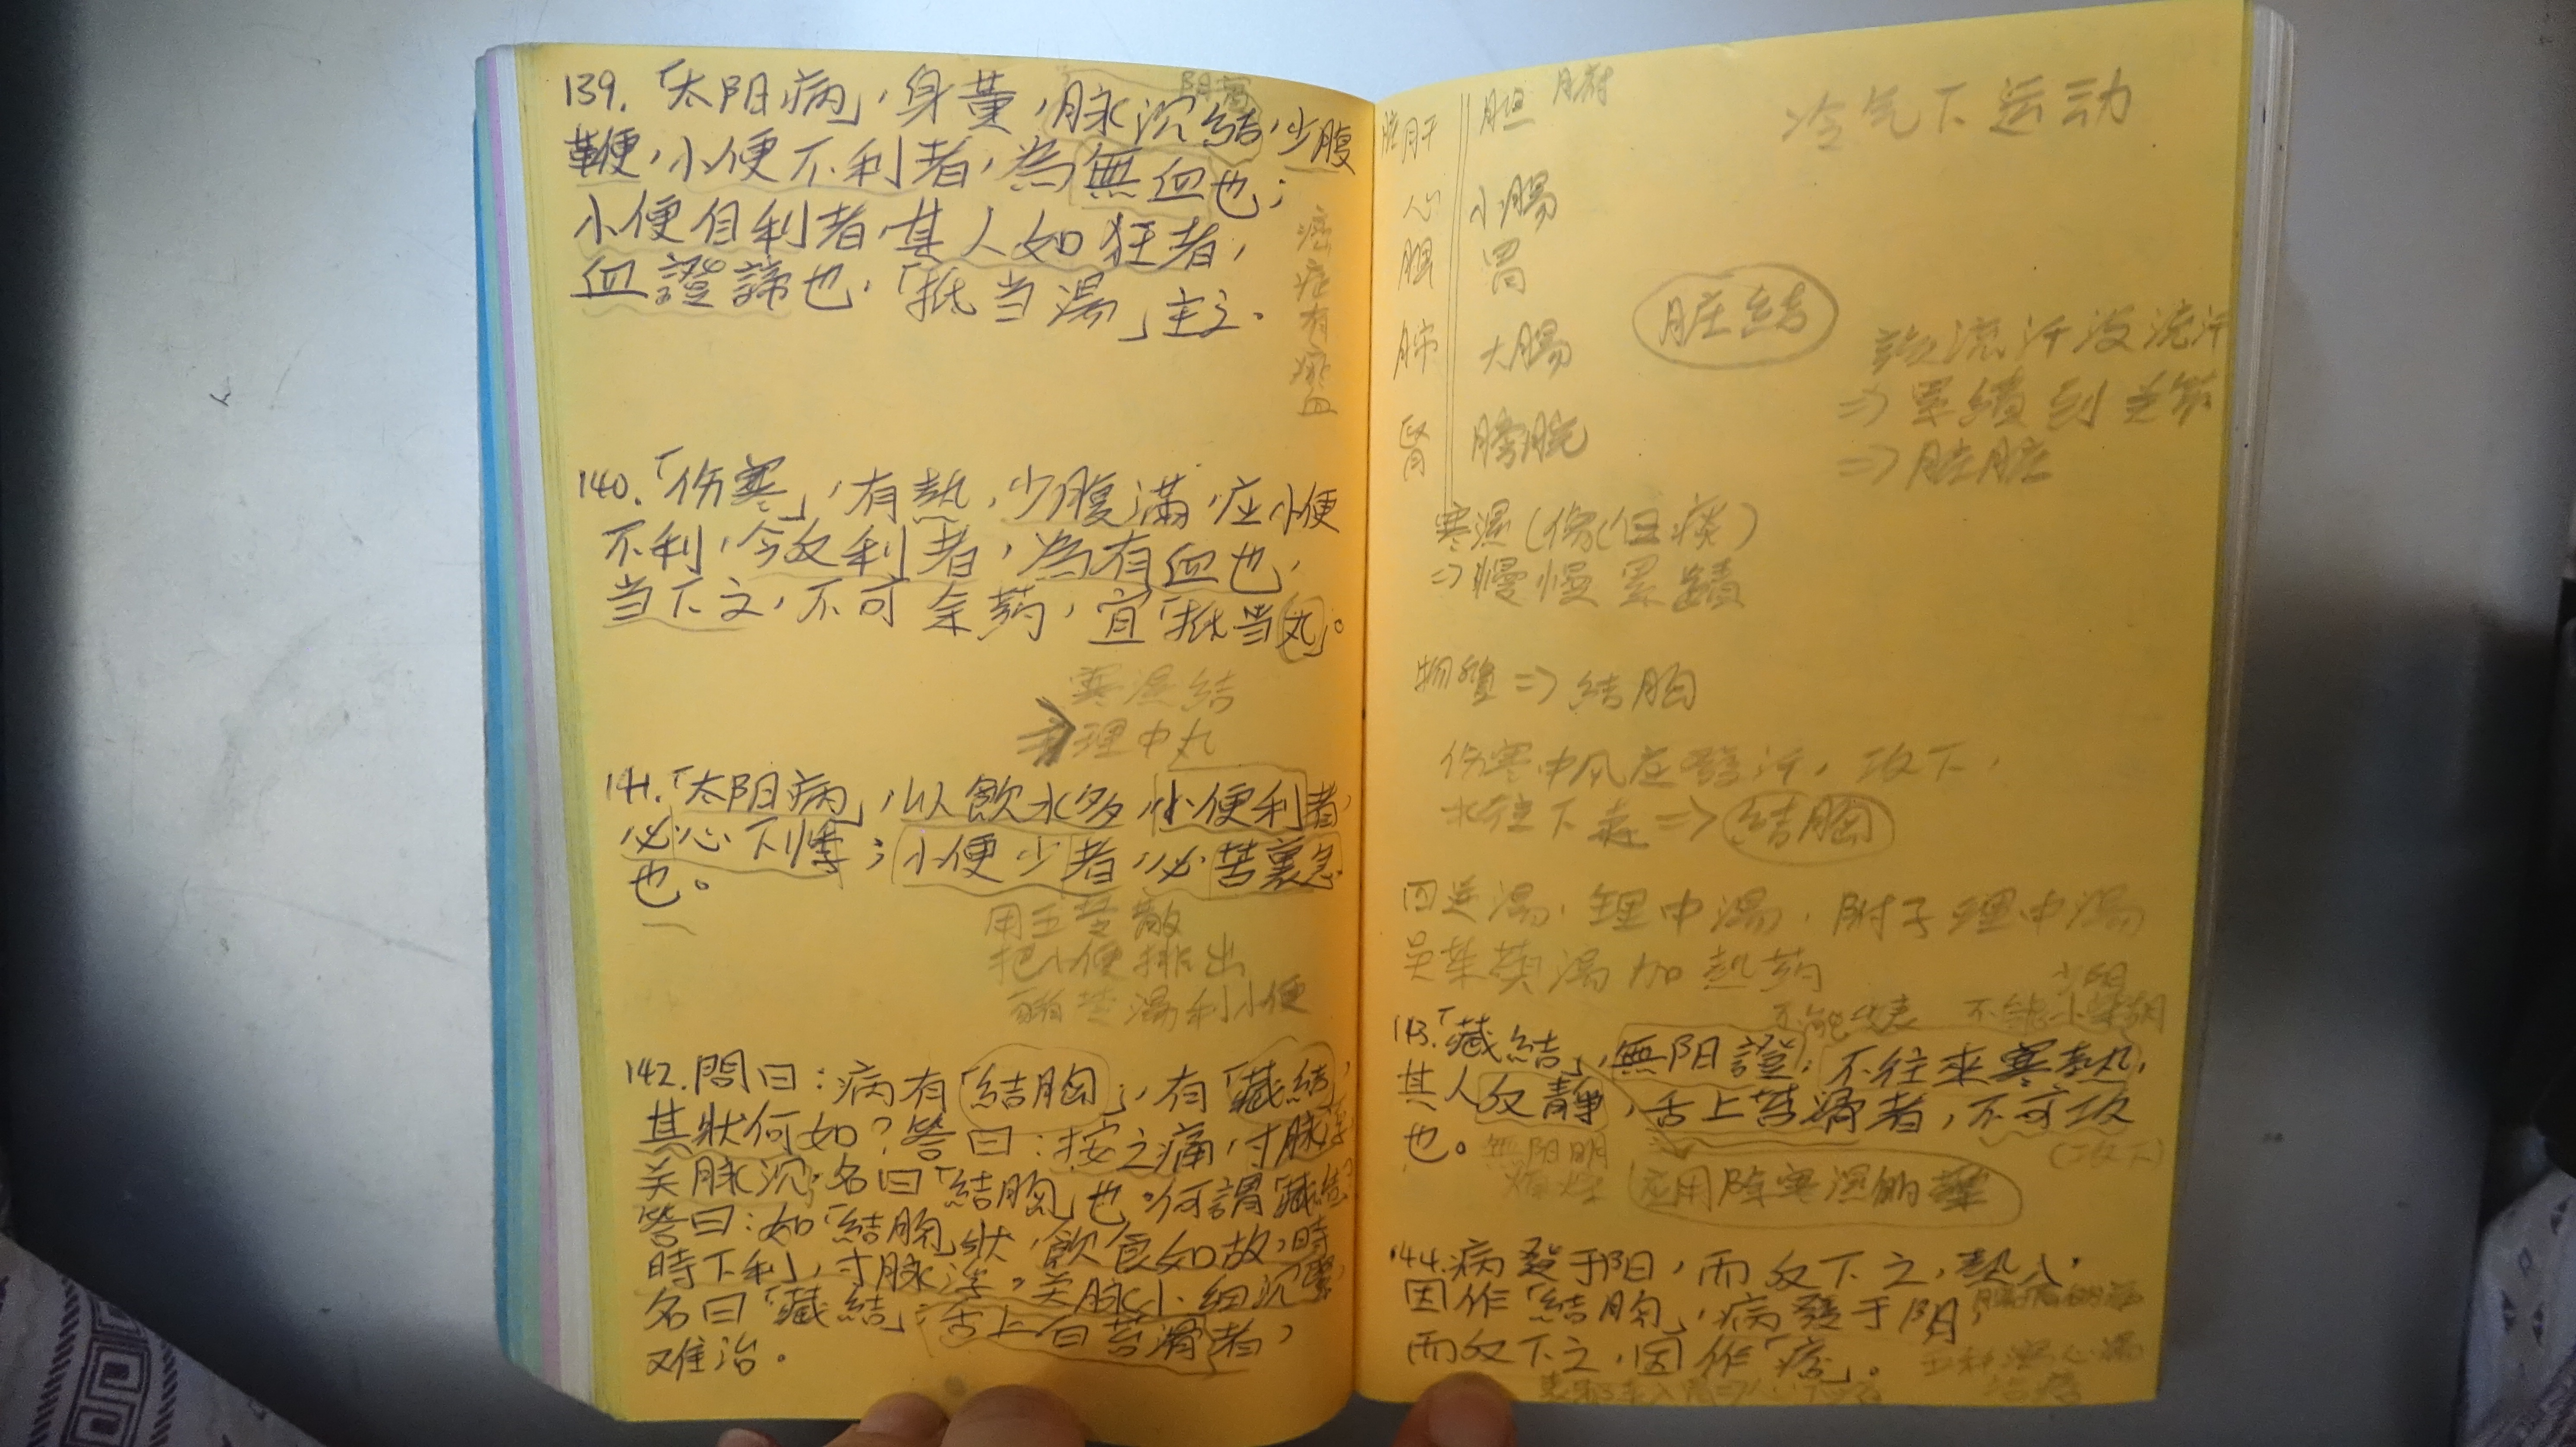 139.「太阳病」,身黄,脉沉結,少腹
鞕,小便不利者,為無血也;
小便自利者,其人如狂者,
血證諦也,「抵当湯」主之。
癌症有瘀血
140.「伤寒」,有熱,少腹滿,应小便
不利,今反利者,為有血也,
当下之,不可余药,宜「抵当丸」。
寒濕結
理中丸
141.「太阳病」,以飲水多,小便利者,
必心下悸;小便少者,必苦裏急
也。
用五苓散
把小便排出
豬苓湯利小便
142.問曰:病有「結胸」,有「藏結」,
其狀何如?答曰:按之痛,寸脉浮
关脉沉,名曰「結胸」也。何謂「藏結」?
答曰:如「結胸」狀,飲食如故,時
時下利,寸脉浮,关脉小細沉緊,
名曰「藏結」;舌上白苔滑者,
难治。
冷气下运动
脏肝 胆 腑
心 小腸
脾 胃
肺 大腸
腎 膀胱
脏結
該流汗沒流汗
⇒累積到关節
⇒脏
寒濕
⇒慢慢累積
⇒結胸
伤寒中风应發汗,攻下,
水往下走⇒結胸
回逆湯,理中湯,附子理中湯
吴茱萸湯加熱药
少阳
不能攻表 不能小柴胡
143.「藏結」,無阳證,不往來寒熱,
其人反静,舌上苔滑者,不可攻
也。無阳明 (攻下)
应用陈寒濕的藥
144.病發于阳,而反下之,熱入,
因作「結胸」,病發于阴,
而反下之,因作「痞」。